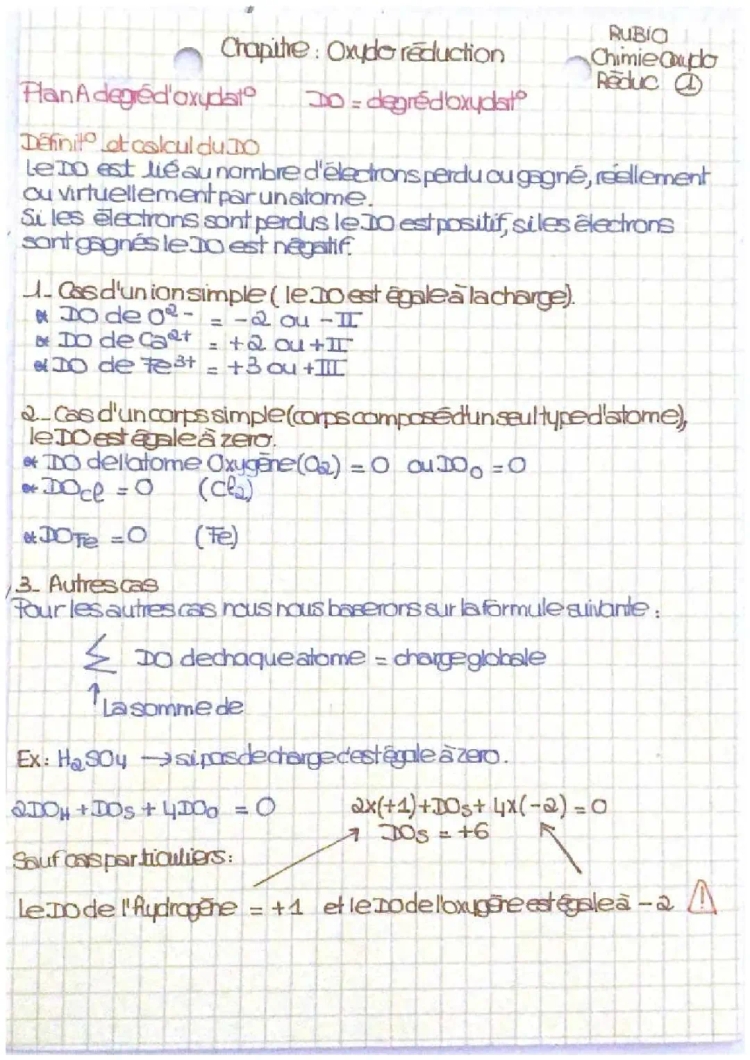 Chapitre : Oxydo réduction
RUBIO
Chimie Oxydo
Réduc ①
Plan A degré d'oxydat° DO = degré d'oxydat°
Définit° et calcul du DO
Le DO est lié au nombre d'électrons perdu ou gagné, réellement
ou virtuellement par un atome.
Si les électrons sont perdus le DO est positif, si les électrons
sont gagnés le DO est négatif.
1_ Cas d'un ion simple ( le DO est égale à la charge).
* DO de O²⁻ = -2 ou -II
* DO de Ca²⁺ = +2 ou +II
* DO de Fe³⁺ = +3 ou +III
2_ Cas d'un corps simple (corps composé d'un seul type d'atome),
le DO est égale à zero.
* DO de l'atome Oxygène (O₂) = 0 ou DO₀ = 0
* DOcl = 0 (Cl₂)
* DOFe = 0 (Fe)
3_ Autres cas
Pour les autres cas nous nous baserons sur la formule suivante :
Σ DO de chaque atome = charge globale
↑ La somme de
Ex : H₂SO₄ → si pas de charge c'est égale à zero.
2DOH + DOs + 4DO₀ = 0 2x(+1)+DOs+ 4x(-2) = 0
DOs = +6
Sauf cas particuliers :
Le DO de l'Hydrogène = +1 et le DO de l'oxygène est égale à -2 ⚠